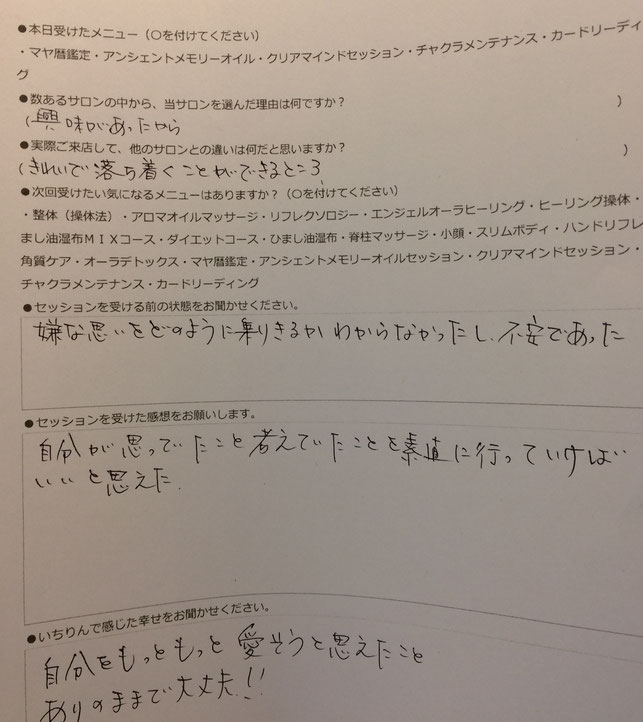 ●本日受けたメニュー(〇を付けてください)
・マヤ暦鑑定・アンシェントメモリーオイル・クリアマインドセッション・チャクラメンテナンス・カードリーディ
グ
●数あるサロンの中から、当サロンを選んだ理由は何ですか?
(興味があったから )
●実際ご来店して、他のサロンとの違いは何だと思いますか?
(きれいで落ち着くことができるところ )
●次回受けたい気になるメニューはありますか?(〇を付けてください)
・整体(操体法)・アロマオイルマッサージ・リフレクソロジー・エンジェルオーラヒーリング・ヒーリング操体・
まし油湿布MIXコース・ダイエットコース・ひまし油湿布・脊柱マッサージ・小顔・スリムボディ・ハンドリフレ
角質ケア・オーラデトックス・マヤ暦鑑定・アンシェントメモリーオイルセッション・クリアマインドセッション・
チャクラメンテナンス・カードリーディング
●セッションを受ける前の状態をお聞かせください。
嫌な思いをどのように乗りきるかわからなかったし、不安であった
●セッションを受けた感想をお願いします。
自分が思っていたこと考えていたことを素直に行っていけば
いいと思えた.
●いちりんで感じた幸せをお聞かせください。
自分をもっともっと愛そうと思えたこと
ありのままで大丈夫!!